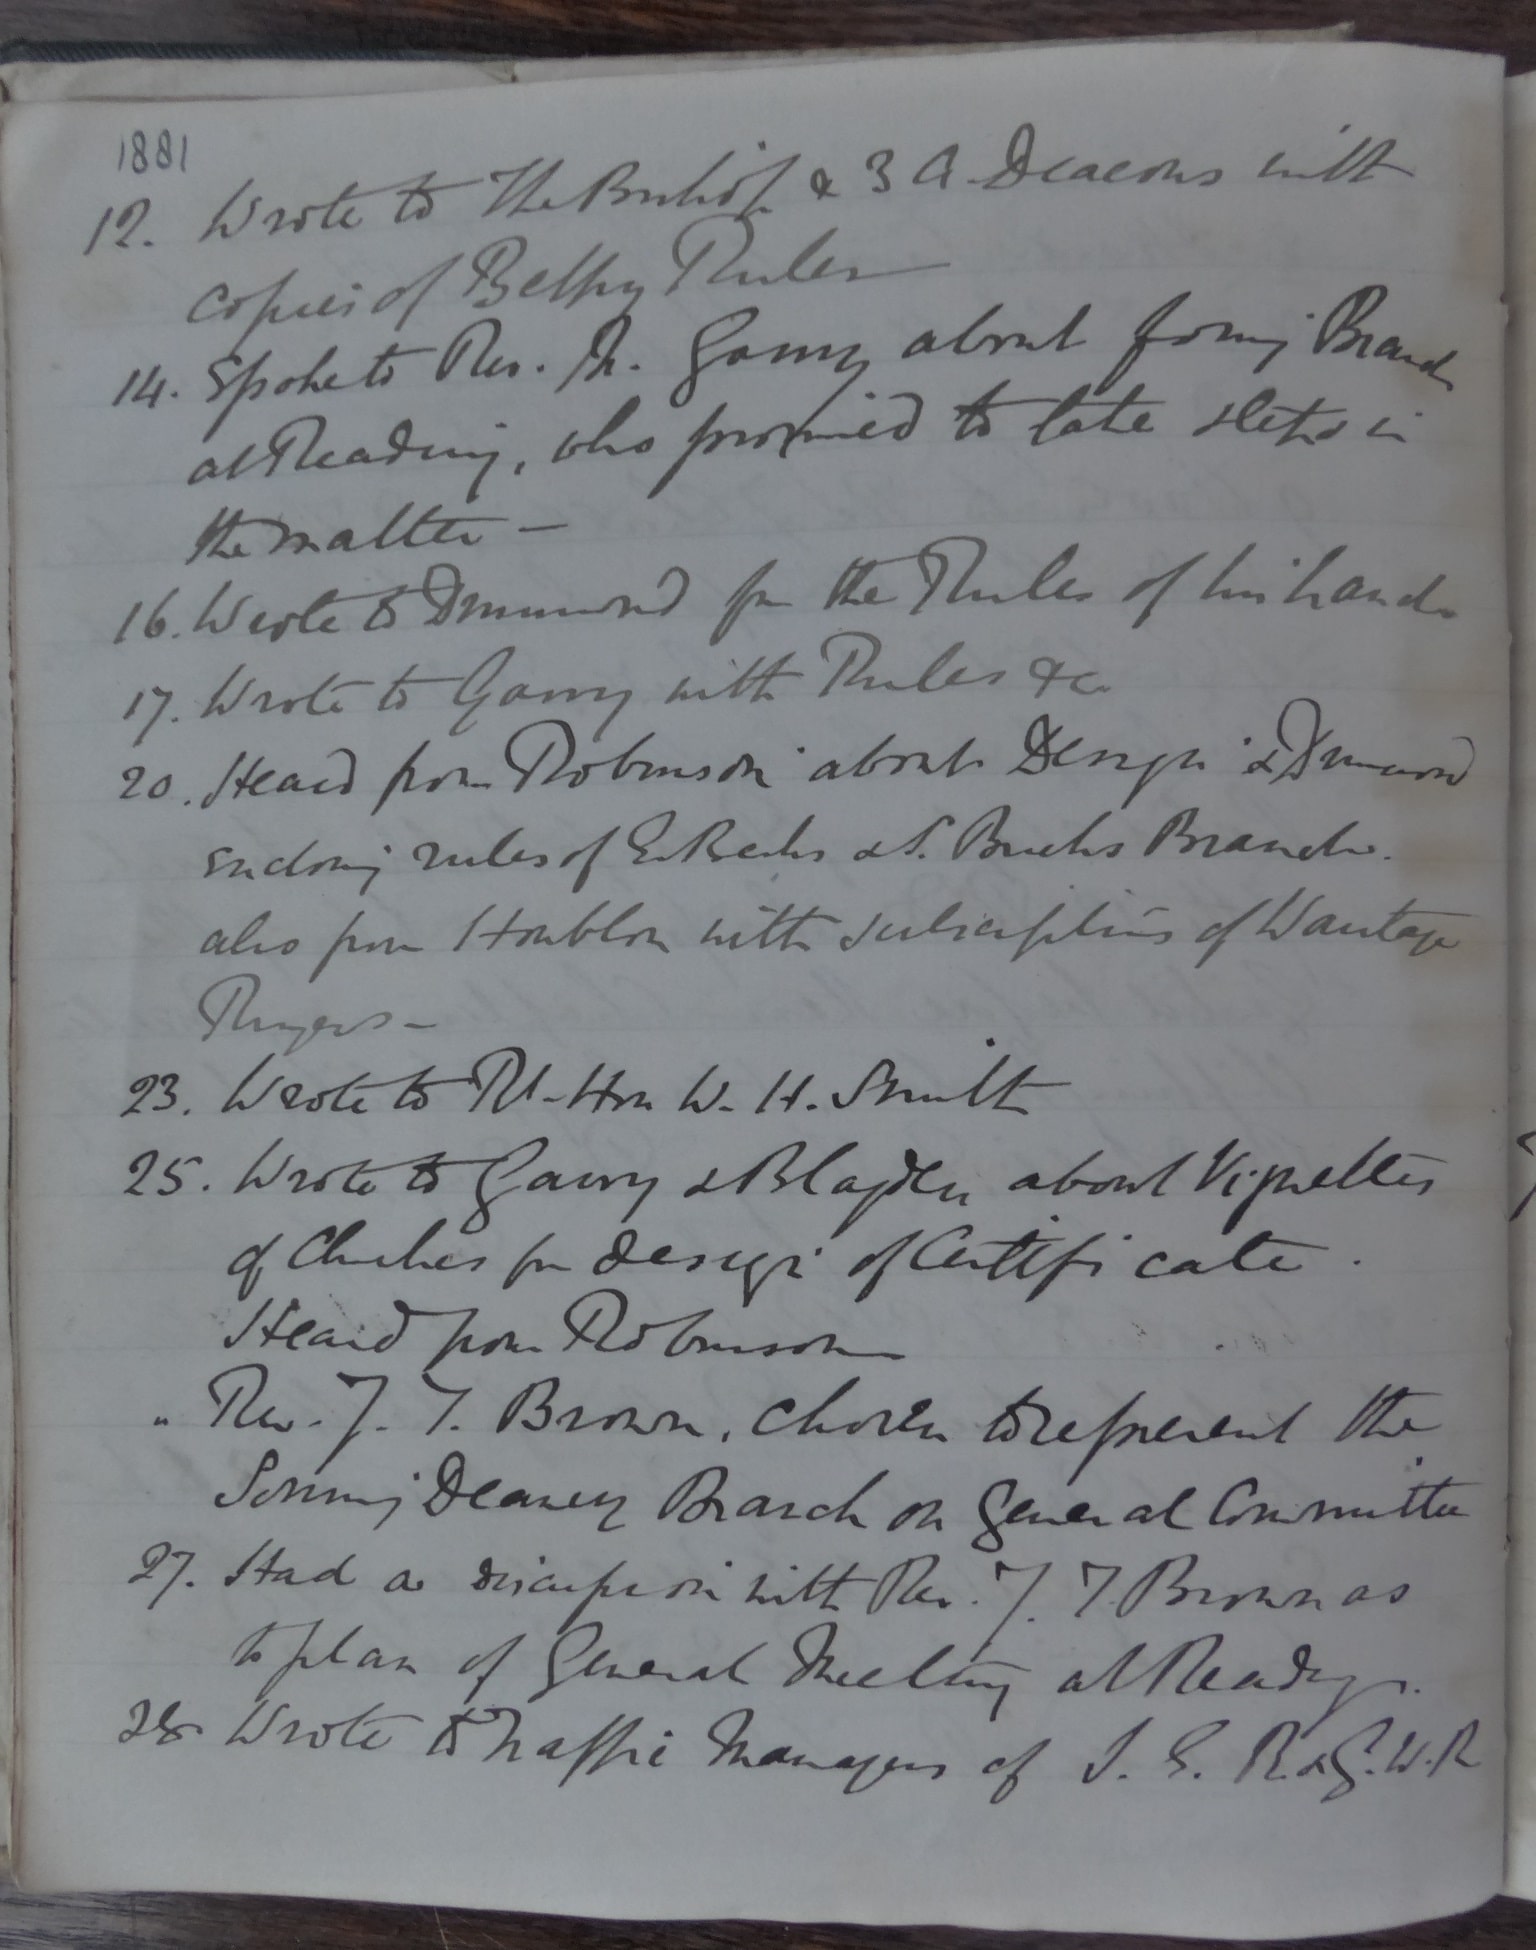 1881
12. Wrote to The Bishop & 3 A-Deacons with
copies of Belfry Rules
14. Spoke to Rev. Mr. Garry about forming Branch
at Reading, who promised to take steps in
the matter —
16. Wrote to Drummond for the Rules of his
17. Wrote to Garry with Rules &c.
20. Heard from Robinson about Design & Drummond
enclosing rules of E. Berks & S. Bucks Branch.
also from Houblon with subscriptions of Wantage
Ringers —
23. Wrote to Rt-Hon W. H. Smith
25. Wrote to Garry & Blagden about Vignettes
of Churches for design of Certificate.
Heard from Robinson
" Rev. J. T. Brown, chosen to represent the
Sonning Deanery Branch on General Committee
27. Had a discussion with Rev. J. T. Brown as
to plan of General Meeting at Reading.
28 Wrote to Traffic Managers of S. E. R. & G. W. R